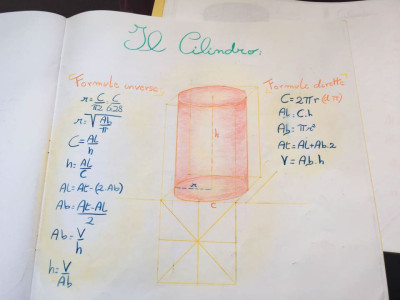 Il Cilindro:
Formule inverse:
r = C/π2 C/6.28
r = √Ab/π
C = AL/h
h = AL/C
AL = At-(2.Ab)
Ab = At-AL/2
Ab = V/h
h = V/Ab
h
r
C
Formule dirette
C = 2πr (dπ)
AL = C.h
Ab = πr²
At = AL+Ab.2
V = Ab.h